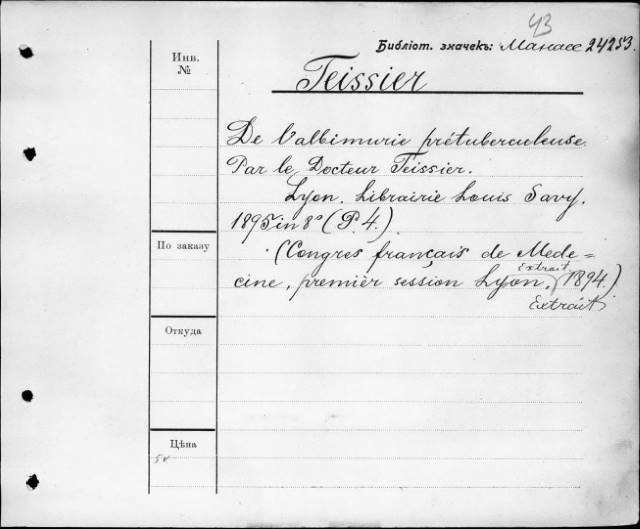 43
Библіот. значекъ: Манасе 24253.
Инв. №
Teissier
De l'albimurie prétuberculeuse.
Par le Docteur Teissier.
Lyon. Librairie Louis Savy.
1895 in 8° (P. 4.)
По заказу
(Congres français de Mede=
Extrait
cine, premièr session Lyon, (1894.)
Extráit
Откуда
Цѣна